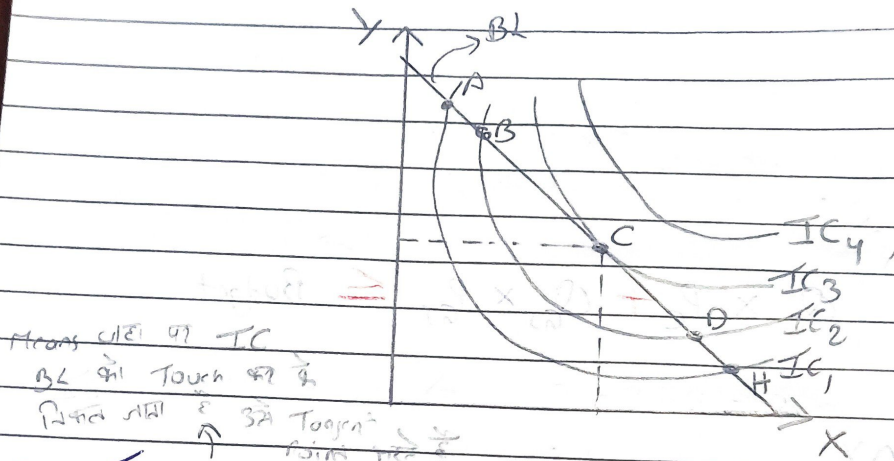 Y
BL
A
B
C
IC4
IC3
D
IC2
IC1
H
X
Means जहा पर IC
BL को Touch कर के
निकल जाता है उसे Tangent
Point कहते हैं